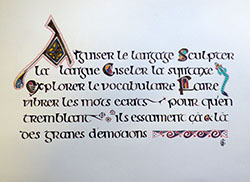 Aiguiser le langage Sculpter
la langue Ciseler la syntaxe
Explorer le vocabulaire Faire
vibrer les mots ecrits pour qu'en
tremblant ils essaiment çà & là
des graines d'emotions